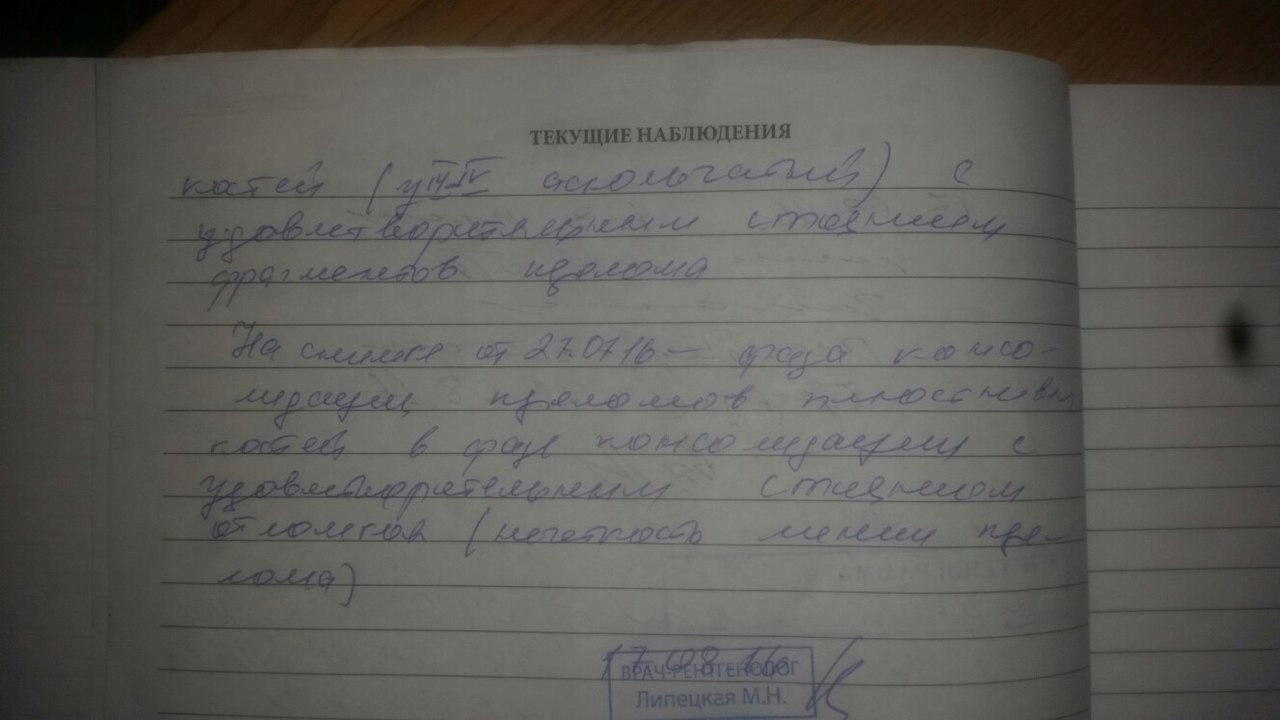 ТЕКУЩИЕ НАБЛЮДЕНИЯ
костей (у III-IV оскольчатый) с
удовлетворительным стоянием
фрагментов перелома
На снимке от 27.07.16 – фаза консо-
лидации переломов плюсневых
костей в фазе консолидации с
удовлетворительным стоянием
отломков (нечеткость линии пере-
лома)
17.08.16
ВРАЧ-РЕНТГЕНОЛОГ
Липецкая М.Н.